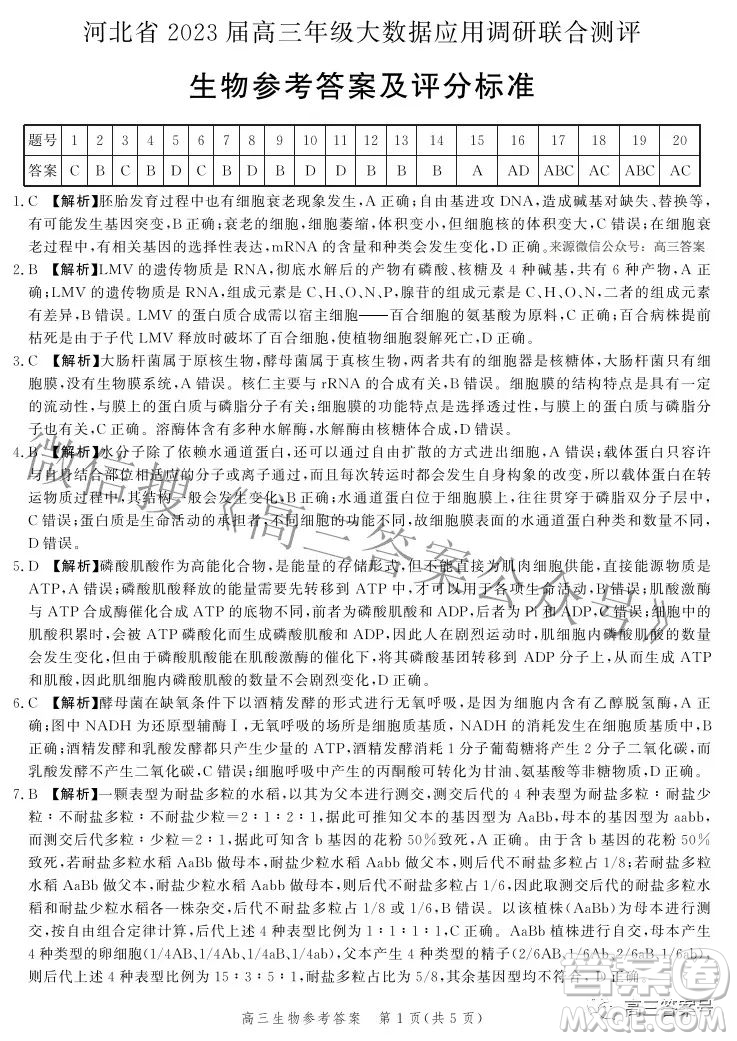 河北省 2023 届高三年级大数据应用调研联合测评
生物参考答案及评分标准
题号 1 2 3 4 5 6 7 8 9 10 11 12 13 14 15 16 17 18 19 20
答案 C B C B D C B D B D B D B B A AD ABC AC ABC AC
1. C 【解析】胚胎发育过程中也有细胞衰老现象发生,A 正确;自由基进攻 DNA,造成碱基对缺失、替换等,
有可能发生基因突变,B 正确;衰老的细胞,细胞萎缩,体积变小,但细胞核的体积变大,C 错误;在细胞衰
老过程中,有相关基因的选择性表达,mRNA 的含量和种类会发生变化,D 正确。来源微信公众号:高三答案
2. B 【解析】LMV 的遗传物质是 RNA,彻底水解后的产物有磷酸、核糖及 4 种碱基,共有 6 种产物,A 正
确;LMV 的遗传物质是 RNA,组成元素是 C、H、O、N、P,腺苷的组成元素是 C、H、O、N,二者的组成元素
有差异,B 错误;LMV 的蛋白质合成需以宿主细胞——百合细胞的氨基酸为原料,C 正确;百合病株提前
枯死是由于子代 LMV 释放时破坏了百合细胞,使植物细胞裂解死亡,D 正确。
3. C 【解析】大肠杆菌属于原核生物,酵母菌属于真核生物,两者共有的细胞器是核糖体,大肠杆菌只有细
胞膜,没有生物膜系统,A 错误。核仁主要与 rRNA 的合成有关,B 错误。细胞膜的结构特点是具有一定
的流动性,与膜上的蛋白质与磷脂分子有关;细胞膜的功能特点是选择透过性,与膜上的蛋白质和磷脂分
子也有关,C 正确。溶酶体含有多种水解酶,水解酶由核糖体合成,D 错误。
4. B 【解析】水分子除了依赖水通道蛋白,还可以通过自由扩散的方式进出细胞,A 错误;载体蛋白只容许
与自身结合部位相适应的分子或离子通过,而且每次转运时都会发生自身构象的改变,所以载体蛋白在转
运物质过程中,其结构一般会发生变化,B 正确;水通道蛋白位于细胞膜上,往往贯穿于磷脂双分子层中,
C 错误;蛋白质是生命活动的承担者,不同细胞的功能不同,故细胞膜表面的水通道蛋白种类和数量不同,
D 错误。
5. D 【解析】磷酸肌酸作为高能化合物,是能量的存储形式,但不能直接为肌肉细胞供能,直接能源物质是
ATP,A 错误;磷酸肌酸释放的能量需要先转移到 ATP 中,才可以用于各项生命活动,B 错误;肌酸激酶
与 ATP 合成酶催化合成 ATP 的底物不同,前者为磷酸肌酸和 ADP,后者为 Pi 和 ADP,C 错误;细胞中的
肌酸积累时,会被 ATP 磷酸化而生成磷酸肌酸和 ADP,因此人在剧烈运动时,肌细胞内磷酸肌酸的数量
会发生变化,但由于磷酸肌酸能在肌酸激酶的催化下,将其磷酸基团转移到 ADP 分子上,从而生成 ATP
和肌酸,因此肌细胞内磷酸肌酸的数量不会剧烈变化,D 正确。
6. C 【解析】酵母菌在缺氧条件下以酒精发酵的形式进行无氧呼吸,是因为细胞内含有乙醇脱氢酶,A 正
确;图中 NADH 为还原型辅酶Ⅰ,无氧呼吸的场所是细胞质基质,NADH 的消耗发生在细胞质基质,B 正
确;酒精发酵和乳酸发酵都只产生少量的 ATP,酒精发酵消耗 1 分子葡萄糖将产生 2 分子二氧化碳,而
乳酸发酵不产生二氧化碳,C 错误;有氧呼吸产生的丙酮酸可转化为甘油、氨基酸等非糖物质,D 正确。
7. B 【解析】一颗表型为耐盐多粒的水稻,以其为父本进行测交,测交后代的 4 种表型为耐盐多粒∶耐盐少
粒∶不耐盐多粒∶不耐盐少粒=2∶1∶2∶1,据此可推知父本的基因型为 AaBb,母本的基因型为 aabb,而
测交后代多粒∶少粒=2∶1,据此可知含 b 基因的花粉 50%致死,A 正确。由于含 b 基因的花粉 50%
致死,若耐盐多粒水稻 AaBb 做母本,耐盐少粒水稻 Aabb 做父本,则后代不耐盐多粒占 1/8;若耐盐多粒
水稻 AaBb 做父本,耐盐少粒水稻 Aabb 做母本,则后代不耐盐多粒占 1/6,因此取测交所得后代耐盐多粒
与耐盐少粒水稻各一株杂交,后代不耐盐多粒占 1/8 或 1/6,B 错误。以该植株(AaBb)为母本进行测交,
按自由组合定律计算,后代 4 种表型比例为 1∶1∶1∶1,C 正确。AaBb 植株进行自交,由于母本产生
4 种类型的卵细胞(1/4AB、1/4Ab、1/4aB、1/4ab),父本产生 4 种类型的精子(2/6AB、1/6Ab、2/6aB、1/6ab),
则后代上述 4 种表型比例为 15∶3∶5∶1,后代耐盐多粒占比为 5/8,其余为杂合子,D 正确。
高三生物参考答案 第 1 页(共 5 页)
微信搜《高三答案公众号》
答案圈
MXQE.COM
高三答案号